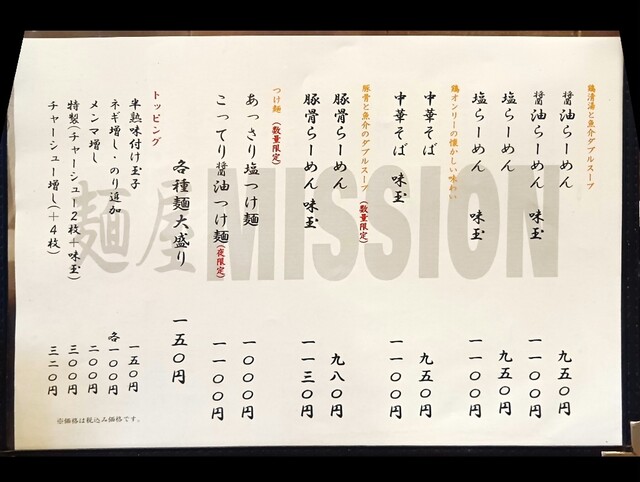 鶏清湯と魚介ダブルスープ
醤油らーめん 九五〇円
醤油らーめん 味玉 一一〇〇円
塩らーめん 九五〇円
塩らーめん 味玉 一一〇〇円
鶏オンリーの懐かしい味わい
中華そば 九五〇円
中華そば 味玉 一一〇〇円
豚骨と魚介のダブルスープ(数量限定)
豚骨らーめん 九八〇円
豚骨らーめん 味玉 一一三〇円
つけ麺(数量限定)
あっさり塩つけ麺 一〇〇〇円
こってり醤油つけ麺(夜限定) 一一〇〇円
各種麺大盛り 一五〇円
トッピング
半熟味付け玉子 一五〇円
ネギ増し・のり追加 各一〇〇円
メンマ増し 二〇〇円
特製(チャーシュー2枚+味玉) 三〇〇円
チャーシュー増し(+4枚) 三二〇円
※価格は税込み価格です。
麺屋 MISSION